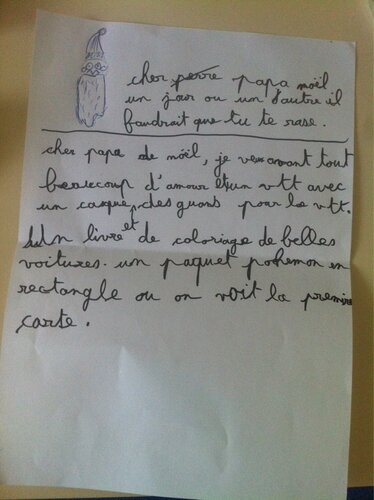 cher perre papa noël
un jour ou un d'autre il
faudrait que tu te rase.
cher papa de nöel, je veu avant tout
beaucoup d'amour et un vtt avec
un casque, des guans pour le vtt.
Un livre et de coloriage de belles
voitures. un paquet pokemon en
rectangle ou on voit la premire
carte.